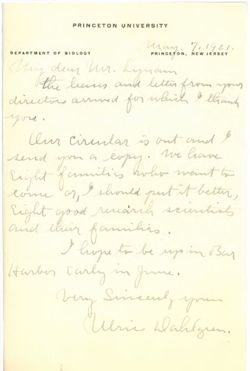 PRINCETON UNIVERSITY
DEPARTMENT OF BIOLOGY
PRINCETON, NEW JERSEY
May. 7, 1921.
My dear Mr. Lynam
The leases and letter from your
directors arrived for which I thank
you.
Our circular is out and I
send you a copy. We have
Eight families who want to
come or, I should put it better,
Eight good research scientists
and their families.
I hope to be up in Bar
Harbor early in June.
Very Sincerely yours
Ulric Dahlgren.